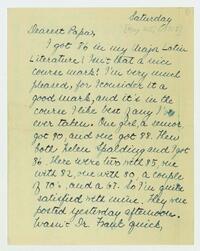 Saturday
Dearest Papa,
I got 86 in my Major Latin
Literature! Isn't that a nice
course mark! I'm very much
pleased, for I consider it a
good mark, and it's in the
course I like best of any I've
ever taken. One girl, a senior
got 90, and one got 88. Then
both Helen Spalding and I got
86. There were two with 85, one
with 82, one with 80, a couple
of 70's, and a 67. So I'm quite
satisfied with mine. They were
posted yesterday afternoon.
Wasn't Dr. Frank quick,